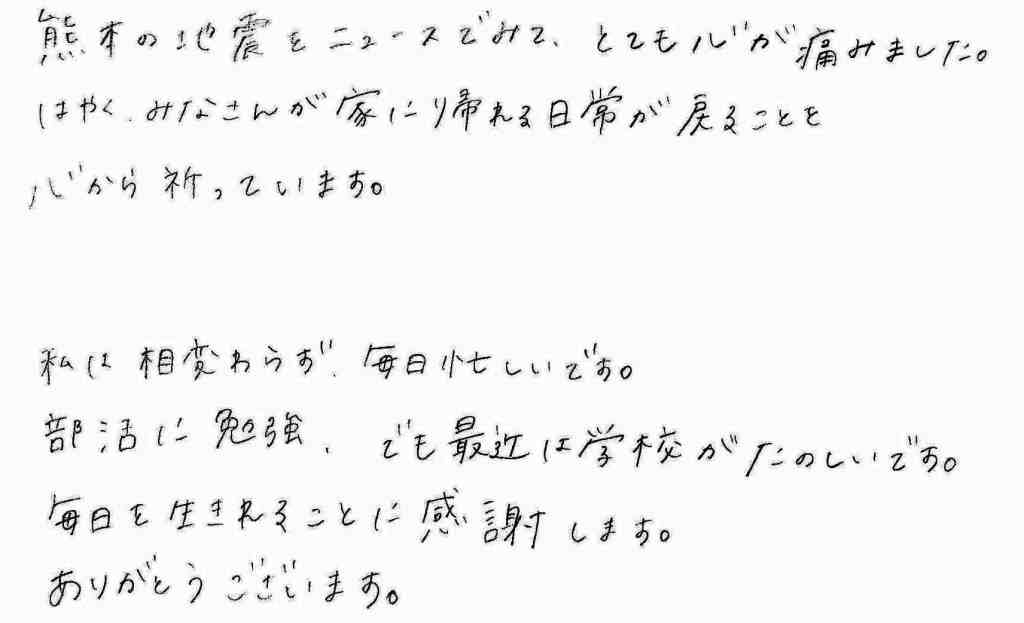 熊本の地震をニュースでみて、とても心が痛みました。
はやく、みなさんが家に帰れる日常が戻ることを
心から祈っています。
私は相変わらず、毎日忙しいです。
部活に勉強、でも最近は学校がたのしいです。
毎日を生きれることに感謝します。
ありがとうございます。